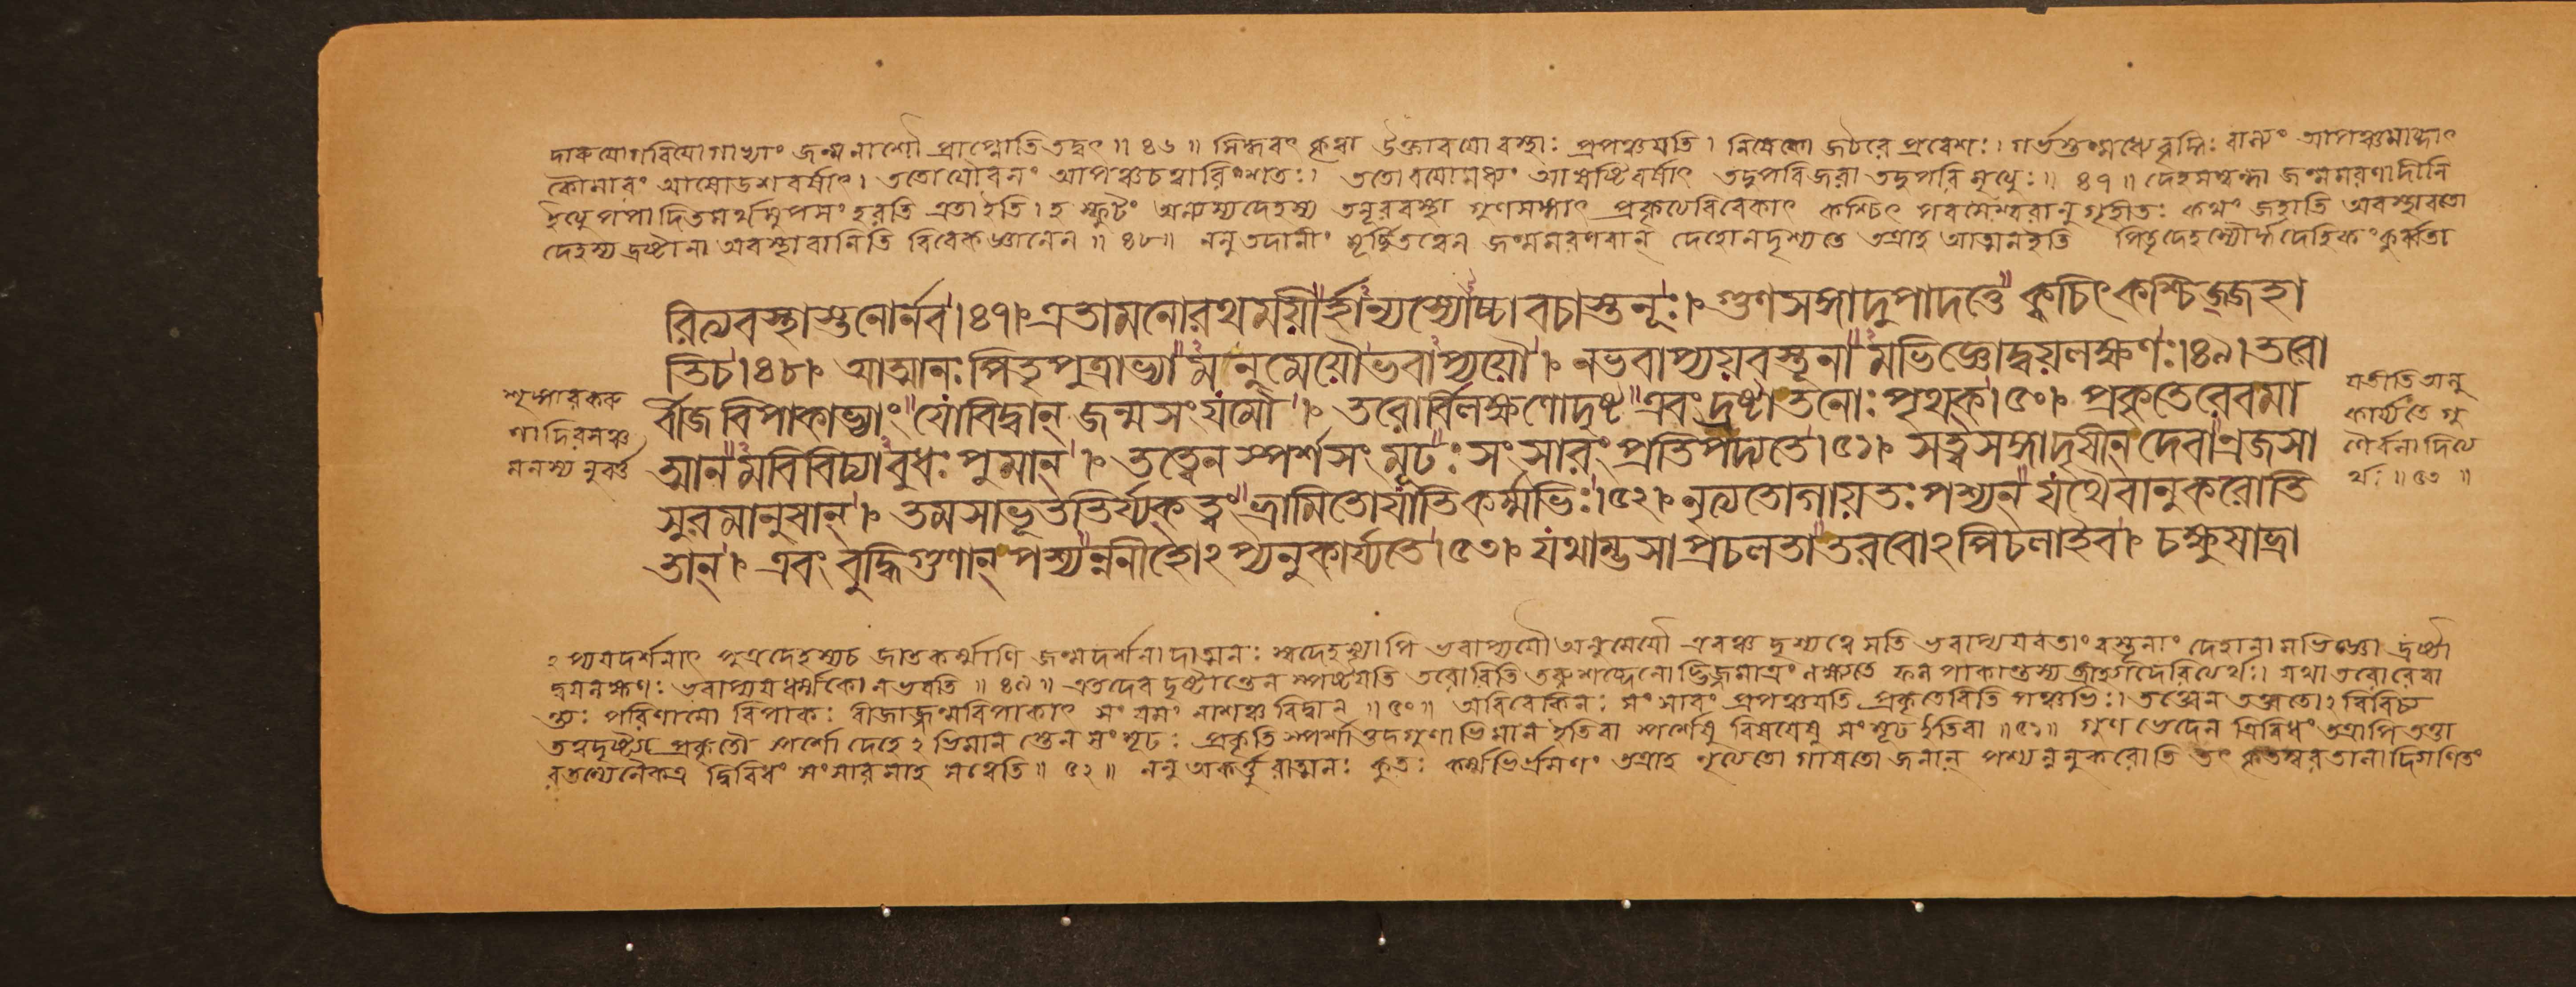 দারুযোগবিযোগাখ্যাং জন্মনাশৌ প্রাপ্নোতি তদ্বৎ॥ ৪৬॥ সিদ্ধবৎ কৃত্বা উক্তাবযোবস্থাঃ প্রপঞ্চযতি। নিষেকো জঠরে প্রবেশঃ। গর্ভস্তন্মধ্যেবৃদ্ধিঃ বাল্যং আপঞ্চমাব্দাৎ
কৌমারং আষোডশবর্ষাৎ। ততোযৌবনং আপঞ্চচত্বারিংশতঃ। ততোবযোমধ্যং আষষ্টিবর্ষাৎ তদুপরিজরা তদুপরি মৃত্যুঃ॥ ৪৭॥ দেহসম্বন্ধা জন্মমরণাদীনি
ইত্যুপপাদিতমর্থমুপসংহরতি এতা ইতি। হ স্ফুটং অন্যস্যদেহস্য তনূরবস্থা গুণসঙ্গাৎ প্রকৃত্যেবিবেকাৎ কশ্চিৎ পরমেশ্বরানুগৃহীতঃ কথং জহাতি অবস্থাবতো
দেহস্য দ্রষ্টানা অবস্থাবানিতি বিবেকজ্ঞানেন॥ ৪৮॥ ননু তদানীং মূর্চ্ছিতত্বেন জন্মমরণবান্ দেহোনদৃশ্যতে তত্রাহ আত্মনইতি পিতৃদেহস্যৌর্দ্ধদেহিকংকুর্ব্বতা
রিত্যবস্থাস্তনোর্নব।৪৭। এতামনোরথময়ীর্হান্যস্যোচ্চাবচাস্তনূঃ। গুণসঙ্গাদুপাদত্তে ক্বচিৎকশ্চিজ্জহা
তিচ।৪৮। আত্মনঃপিতৃপুত্রাভ্যামনুমেয়ৌভবাপ্যয়ৌ। নভবাপ্যয়বস্তূনামভিজ্ঞোদ্বয়লক্ষণঃ।৪৯। তরো
র্বীজবিপাকাভ্যাং যোবিদ্বান্ জন্মসংযমৌ। তরোর্বিলক্ষণোদৃষ্ট এবংদ্রষ্টাতনোঃ পৃথক্।৫০। প্রকৃতেরেবমা
ত্মানমবিবিচ্যাবুধঃ পুমান্। তত্ত্বেন স্পর্শসংমূঢঃ সংসারং প্রতিপদ্যতে।৫১। সত্ত্বসঙ্গাদৃষীন্ দেবান্রজসা
সুরমানুষান্। তমসাভূততির্য্যক্ত্বং ভ্রামিতোযাতিকর্ম্মভিঃ।৫২। নৃত্যতোগায়তঃ পশ্যন্ যথৈবানুকরোতি
তান্। এবং বুদ্ধিগুণান্ পশ্যন্ননীহোঽপ্যনুকার্য্যতে।৫৩। যথাম্ভসাপ্রচলতাতরবোঽপিচলাইব। চক্ষুষাভ্রা
শৃঙ্গারকরু
ণাদিরসঞ্চ
মনস্যনুবর্ত্ত
যতীতি অনু
কার্য্যতে গু
ণৈর্বলাদিত্য
র্থঃ॥ ৫৩॥
ঽপ্যযদর্শনাৎ পুত্রদেহস্যচ জাতকর্ম্মাণি জন্মদর্শনাদাত্মনঃ স্বদেহস্যাপি ভবাপ্যযৌ অনুমেযৌ এবঞ্চ দৃশ্যত্বে সতি ভবাপ্যযবতাং বস্তূনাং দেহানামভিজ্ঞো দ্রষ্টা
দ্বযলক্ষণঃ ভবাপ্যযধর্ম্মকো নভবতি॥ ৪৯॥ এতদেব দৃষ্টান্তেন স্পষ্টযতি তরোরিতি তরুশব্দেনোদ্ভিজ্জমাত্রং লক্ষ্যতে ফলপাকান্তস্য ব্রীহ্যাদেরিত্যর্থঃ। যথা তরোরেবা
ন্ত্যঃ পরিণামো বিপাকঃ বীজাজ্জন্মবিপাকাৎ সংযমং নাশঞ্চ বিদ্বান্॥ ৫০॥ অবিবেকিনঃ সংসারং প্রপঞ্চযতি প্রকৃতেরিতি পঞ্চভিঃ। তত্ত্বেন তত্ত্বতোঽবিবিচ্য
প্রকৃতৌ স্পর্শো দেহেঽভিমান স্তেন সংমূঢঃ প্রকৃতি ইতিবা স্পর্শেষু বিষযেষু সংমূঢ ইতিবা॥ ৫১॥ গুণভেদেন ত্রিবিধং তত্রাপি
দ্বিবিধং সংসারমাহ সত্ত্বেতি॥ ৫২॥ ননু অকর্ত্তুরাত্মনঃ কুতঃ কর্ম্মভির্ভ্রমণং তত্রাহ নৃত্যতো গাযতো জনান্ পশ্যন্ননুকরোতি